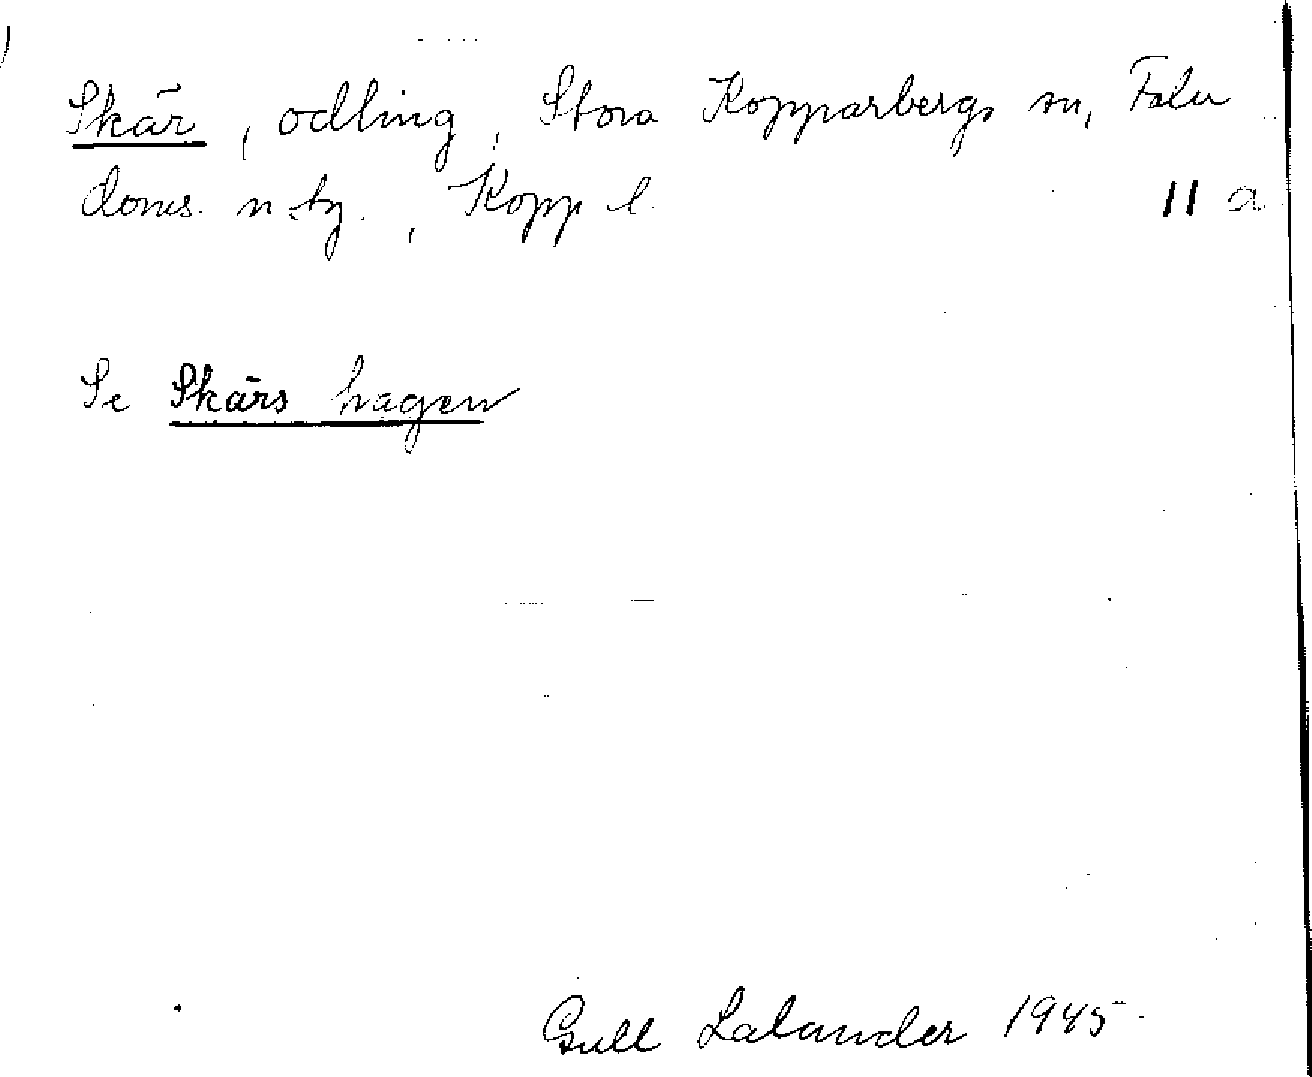 Skär, odling, Stora Kopparbergs sn, Falu
doms. n. tg., Kopp l. 11 a
Se Skärs hagen
Gull Lalander 1945